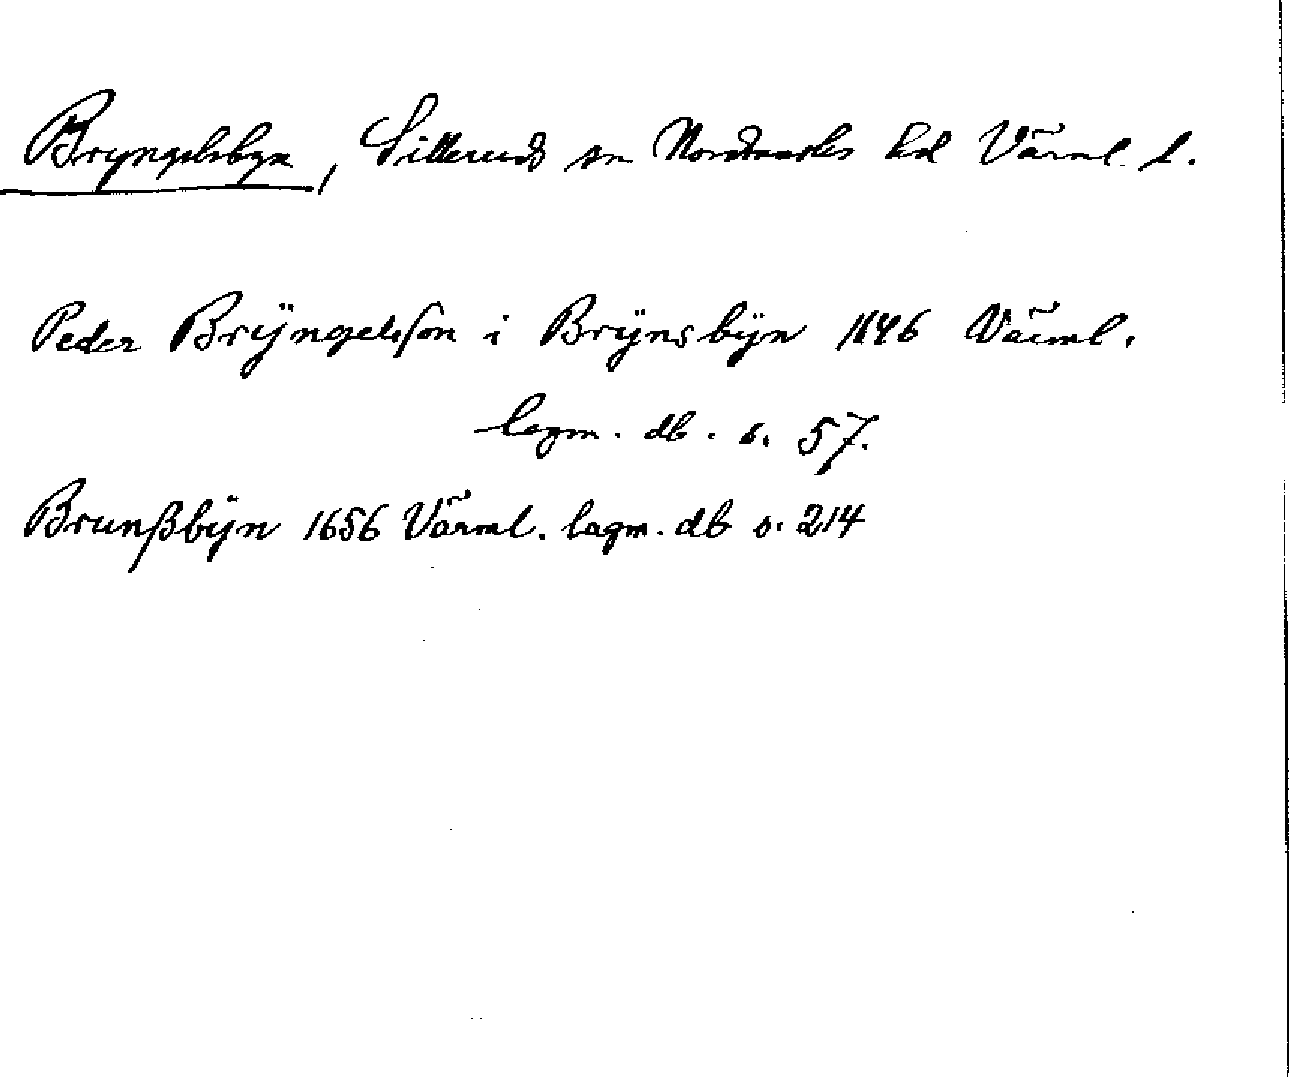 Bryngelsbyn, Sillerud sn Nordmarks hd Värml. l.
Peder Brÿngelsson i Brÿnsbÿn 1646 Värml.
lagm. db. s. 57.
Brunßbÿn 1656 Värml. lagm. db s. 214